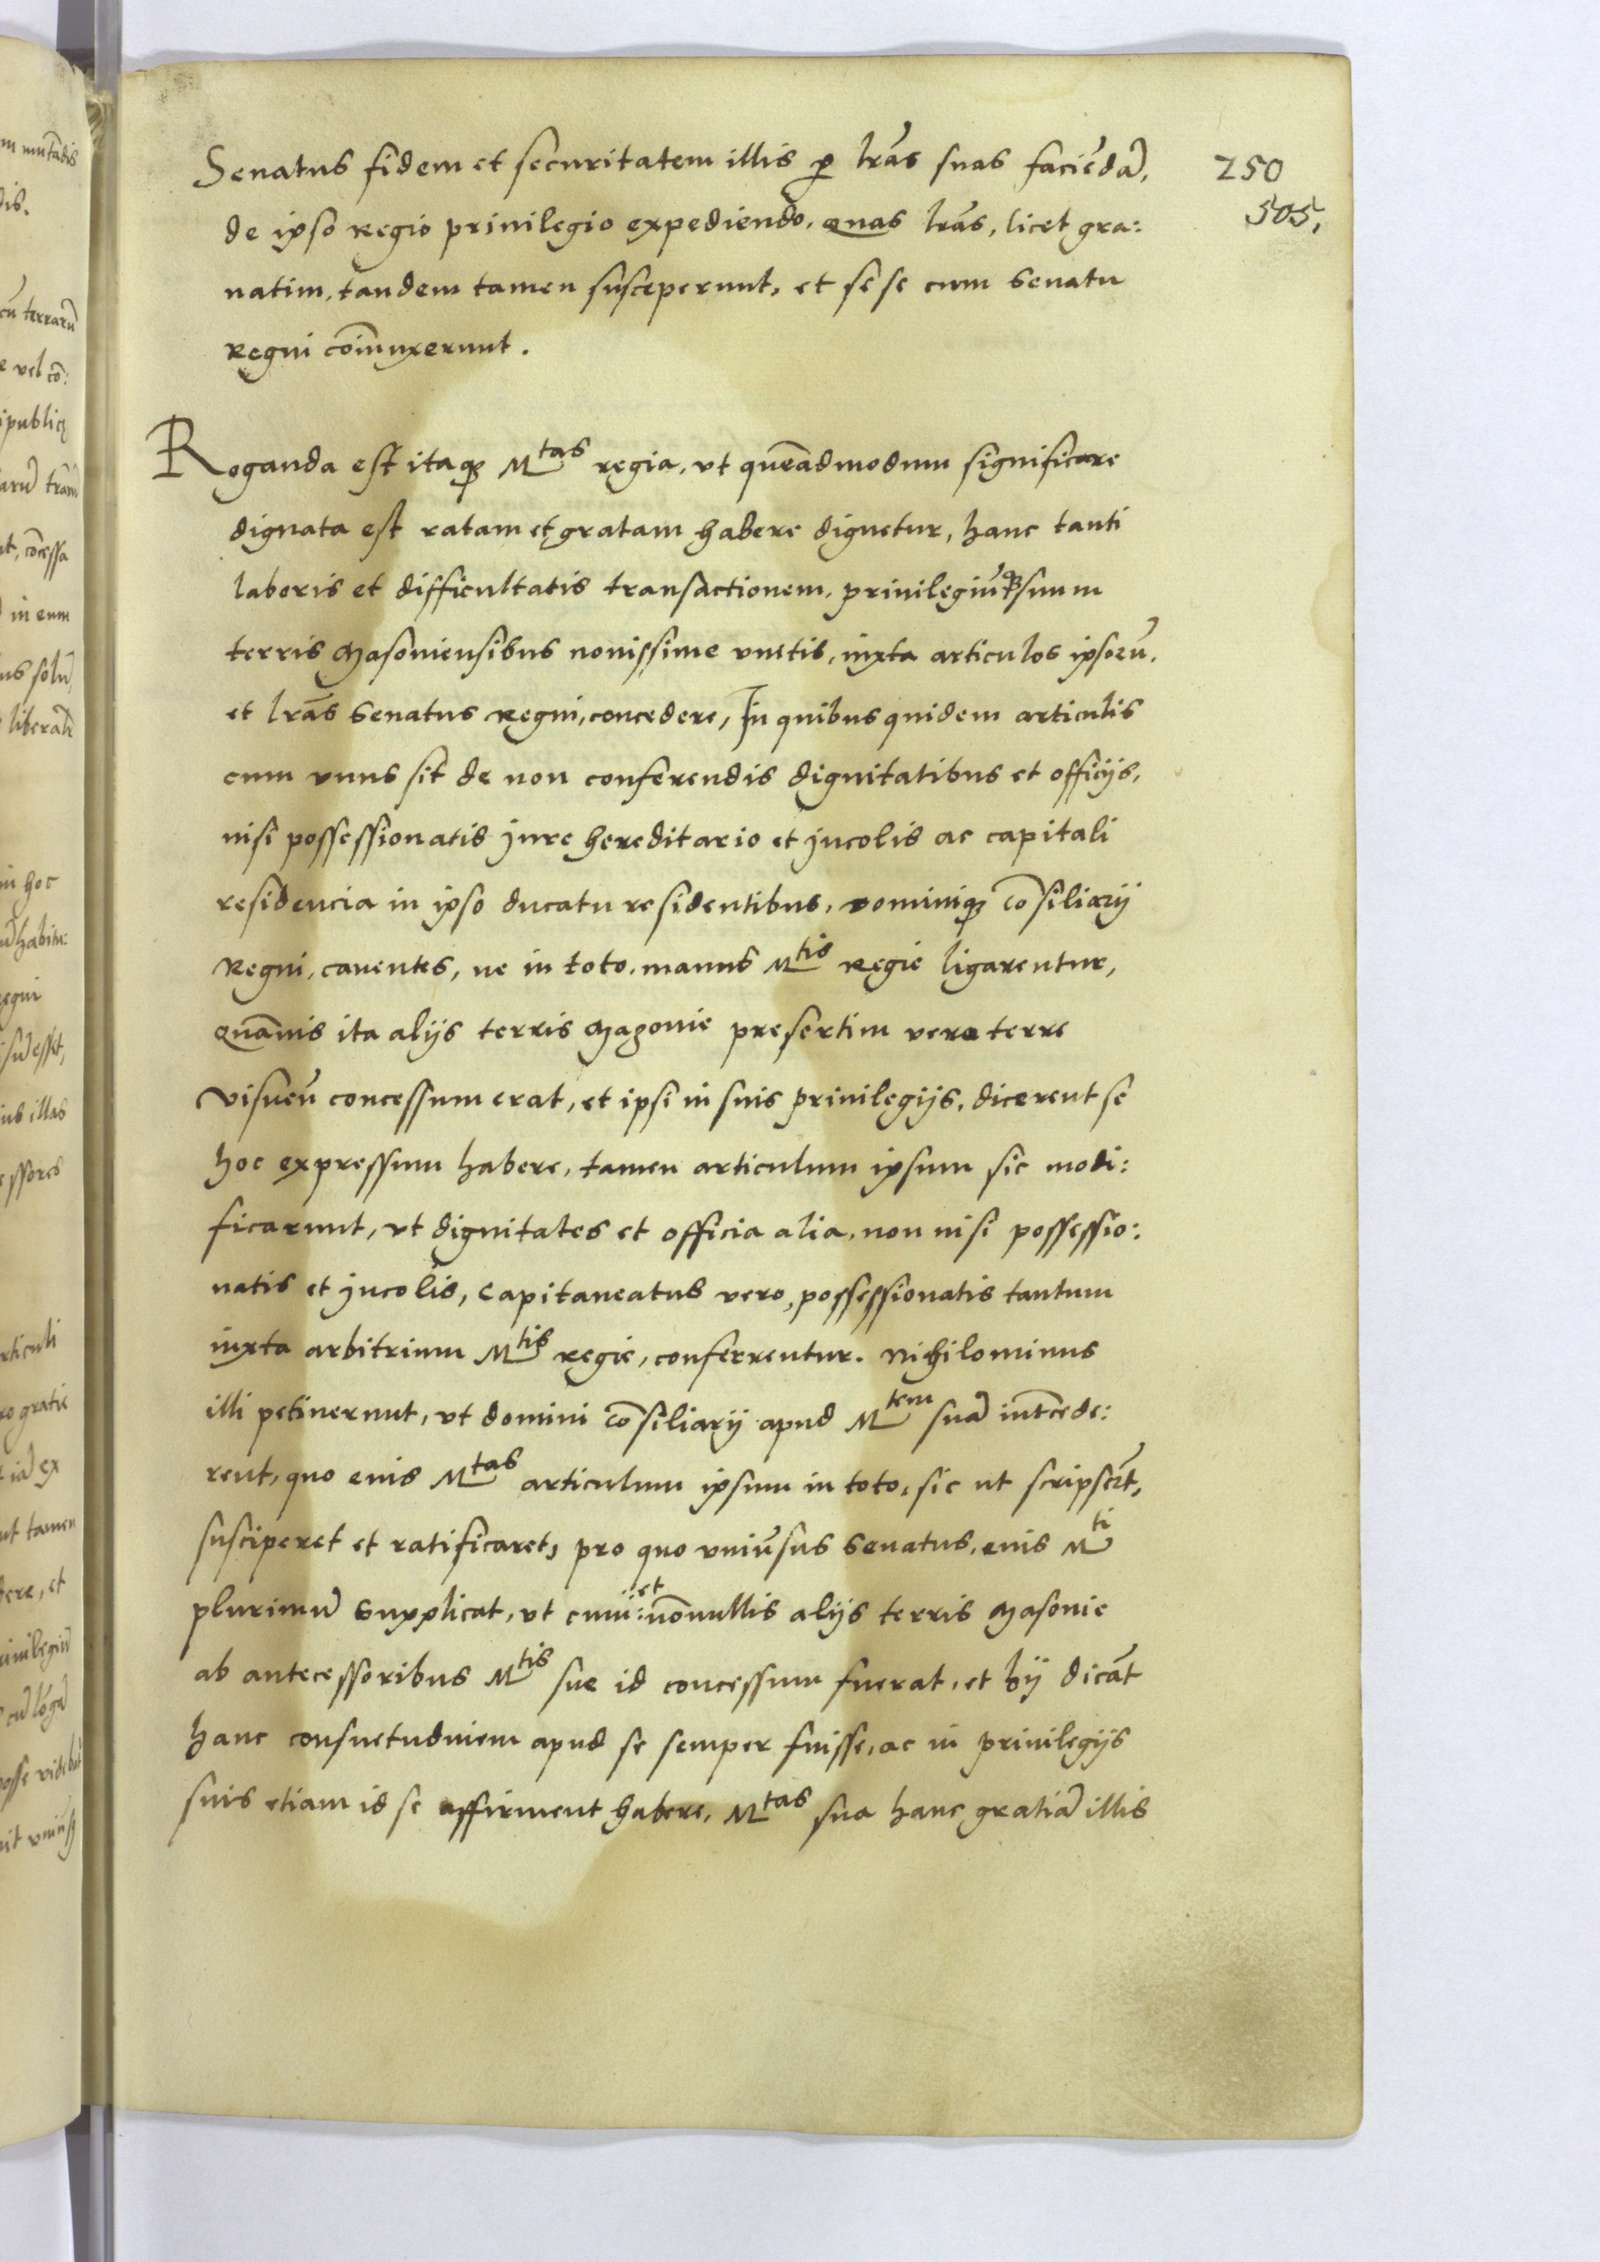 Senatus fidem et securitatem illis p lrãs suas faciẽdã,
250
de ipso Regio priuilegio expediendo, quas lrãs, licet gra:
505,
uatim, tandem tamen susceperunt, et se se cum Senatu
Regni coniũnxerunt.
Roganda est itaq₃ Mᵗᵃˢ regia, vt quẽadmodum significare
dignata est ratam et gratam habere dignetur, hanc tanti
laboris et difficultatis transactionem, priuilegiũq₃ suum
terris Masouiensibus nouissime vnitis, iuxta articulos ipsorũ,
et lrãs Senatus Regni, concedere, In quibus quidem articulis
cum vnus sit de non conferendis dignitatibus et officijs,
nisi possessionatis jure hereditario et jncolis ac capitali
residencia in ipso ducatu residentibus, dominiq₃ cõsiliarij
Regni, cauentes, ne in toto, manus Mᵗⁱˢ Regie ligarentur,
quãuis ita alijs terris Mazouie presertim vero terre
visneñ concessum erat, et ipsi in suis priuilegijs, dicerent se
hoc expressum habere, tamen articulum ipsum sic modi:
ficarunt, vt dignitates et officia alia, non nisi possessio:
natis et jncolis, Capitaneatus vero, possessionatis tantum
iuxta arbitrium Mᵗⁱˢ regie, conferrentur. Nihilominus
illi petiuerunt, vt domini cõsiliarij apud Mᵗᵉᵐ suã intẽcede:
rent, quo eius Mᵗᵃˢ articulum ipsum in toto, sic ut scripsẽt,
susciperet et ratificaret, pro quo vniũsus Senatus, eius Mᵗⁱ
plurimũ Supplicat, vt cum et nõnullis alijs terris Masouie
ab antecessoribus Mᵗⁱˢ sue id concessum fuerat, et hij dicãt
hanc consuetudinem apud se semper fuisse, ac in priuilegijs
suis etiam id se affirment habere, Mᵗᵃˢ sua hanc gratiã illis